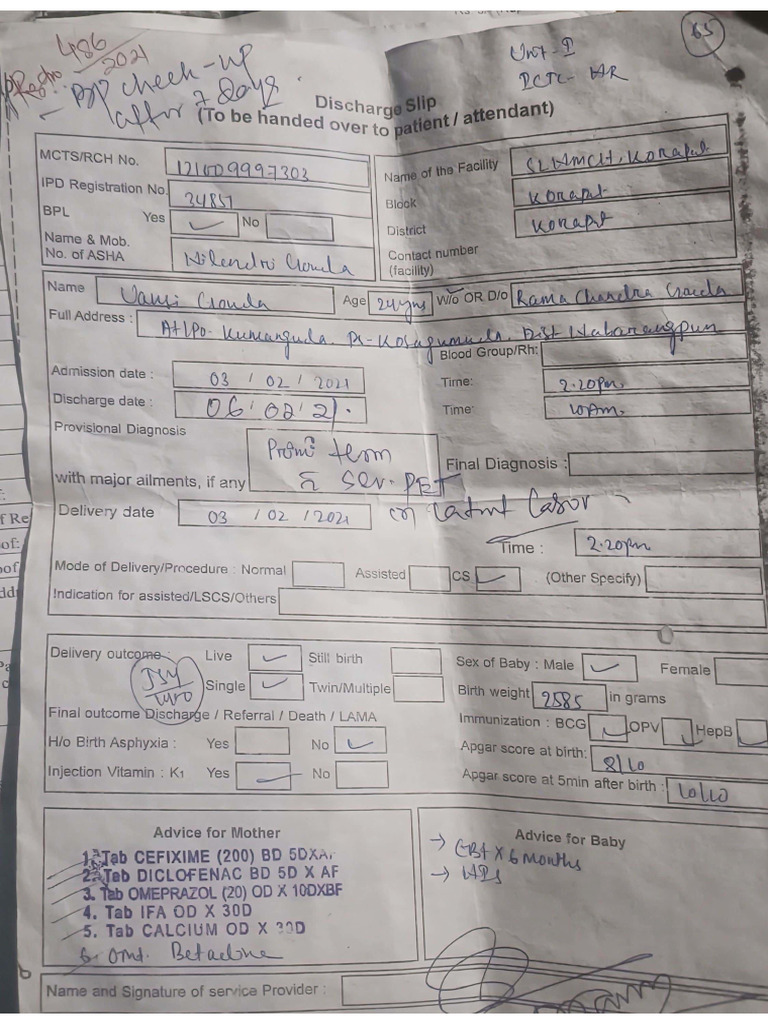 486
2021
Regno.
BP check-up
after 7 days
Unit-I
65
Discharge Slip
(To be handed over to patient / attendant)
MCTS/RCH No.
IPD Registration No. 34851
BPL Yes ✓ No
Name & Mob. No. of ASHA
Name of the Facility SLNMCH, Koraput
Block Koraput
District Koraput
Contact number (facility)
Name Age 24 yrs W/o OR D/o Rama Chandra Gouda
Full Address : At/Po- Kumanguda, Ps- Kosagumuda, Dist Nabarangpur
Blood Group/Rh:
Admission date : 03 / 02 / 2021 Time: 2.20pm
Discharge date : 06.02.21. Time: 10Am.
Provisional Diagnosis
with major ailments, if any
Final Diagnosis :
Delivery date 03 / 02 / 2021 Latent Labor
Time : 2.20pm
Mode of Delivery/Procedure : Normal Assisted CS ✓ (Other Specify)
Indication for assisted/LSCS/Others
Delivery outcome : Live ✓ Still birth
Single ✓ Twin/Multiple
Sex of Baby : Male ✓ Female
Birth weight 2585 in grams
Final outcome Discharge / Referral / Death / LAMA
Immunization : BCG ✓ OPV ✓ HepB ✓
H/o Birth Asphyxia : Yes No ✓
Apgar score at birth: 8/10
Injection Vitamin : K1 Yes ✓ No
Apgar score at 5min after birth : 10/10
Advice for Mother
1. Tab CEFIXIME (200) BD 5DXAF
2. Tab DICLOFENAC BD 5D X AF
3. Tab OMEPRAZOL (20) OD X 10DXBF
4. Tab IFA OD X 30D
5. Tab CALCIUM OD X 30D
6. Ont. Betadine
Advice for Baby
→ EBF X 6 Months
Name and Signature of service Provider :